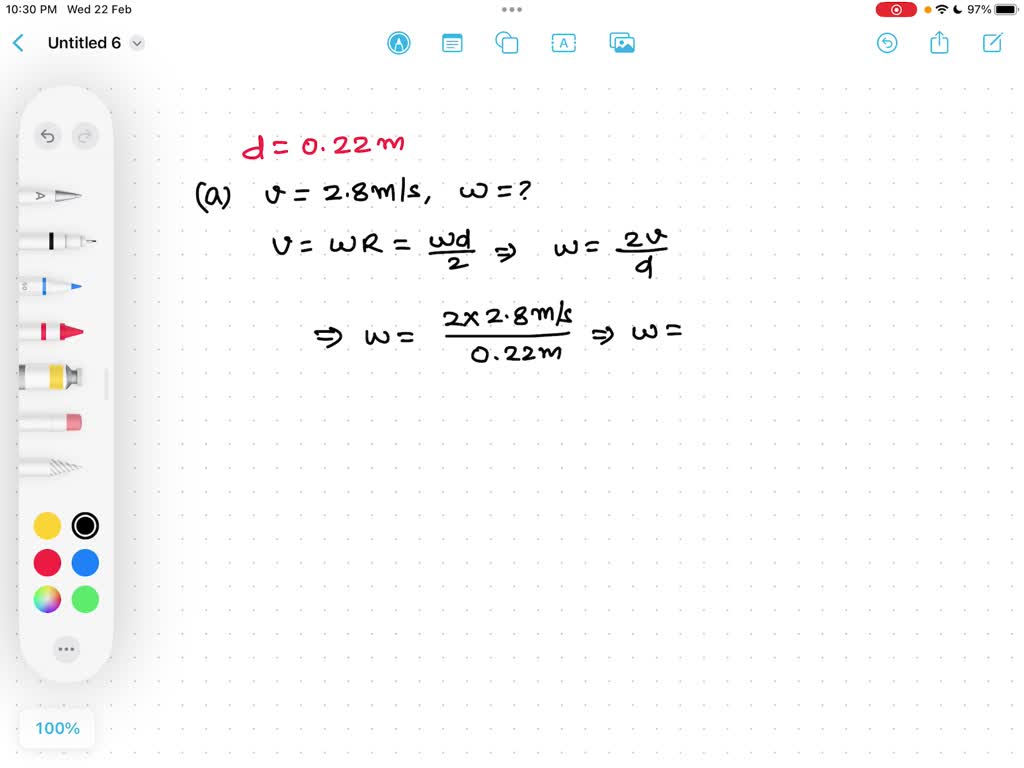 10:30 PM Wed 22 Feb 97%
Untitled 6
A
d = 0.22 m
(a) v = 2.8 m/s, ω = ?
v = ωR = ωd/2 ⇒ ω = 2v/d
⇒ ω = 2 × 2.8 m/s / 0.22 m ⇒ ω =
A
50
100%